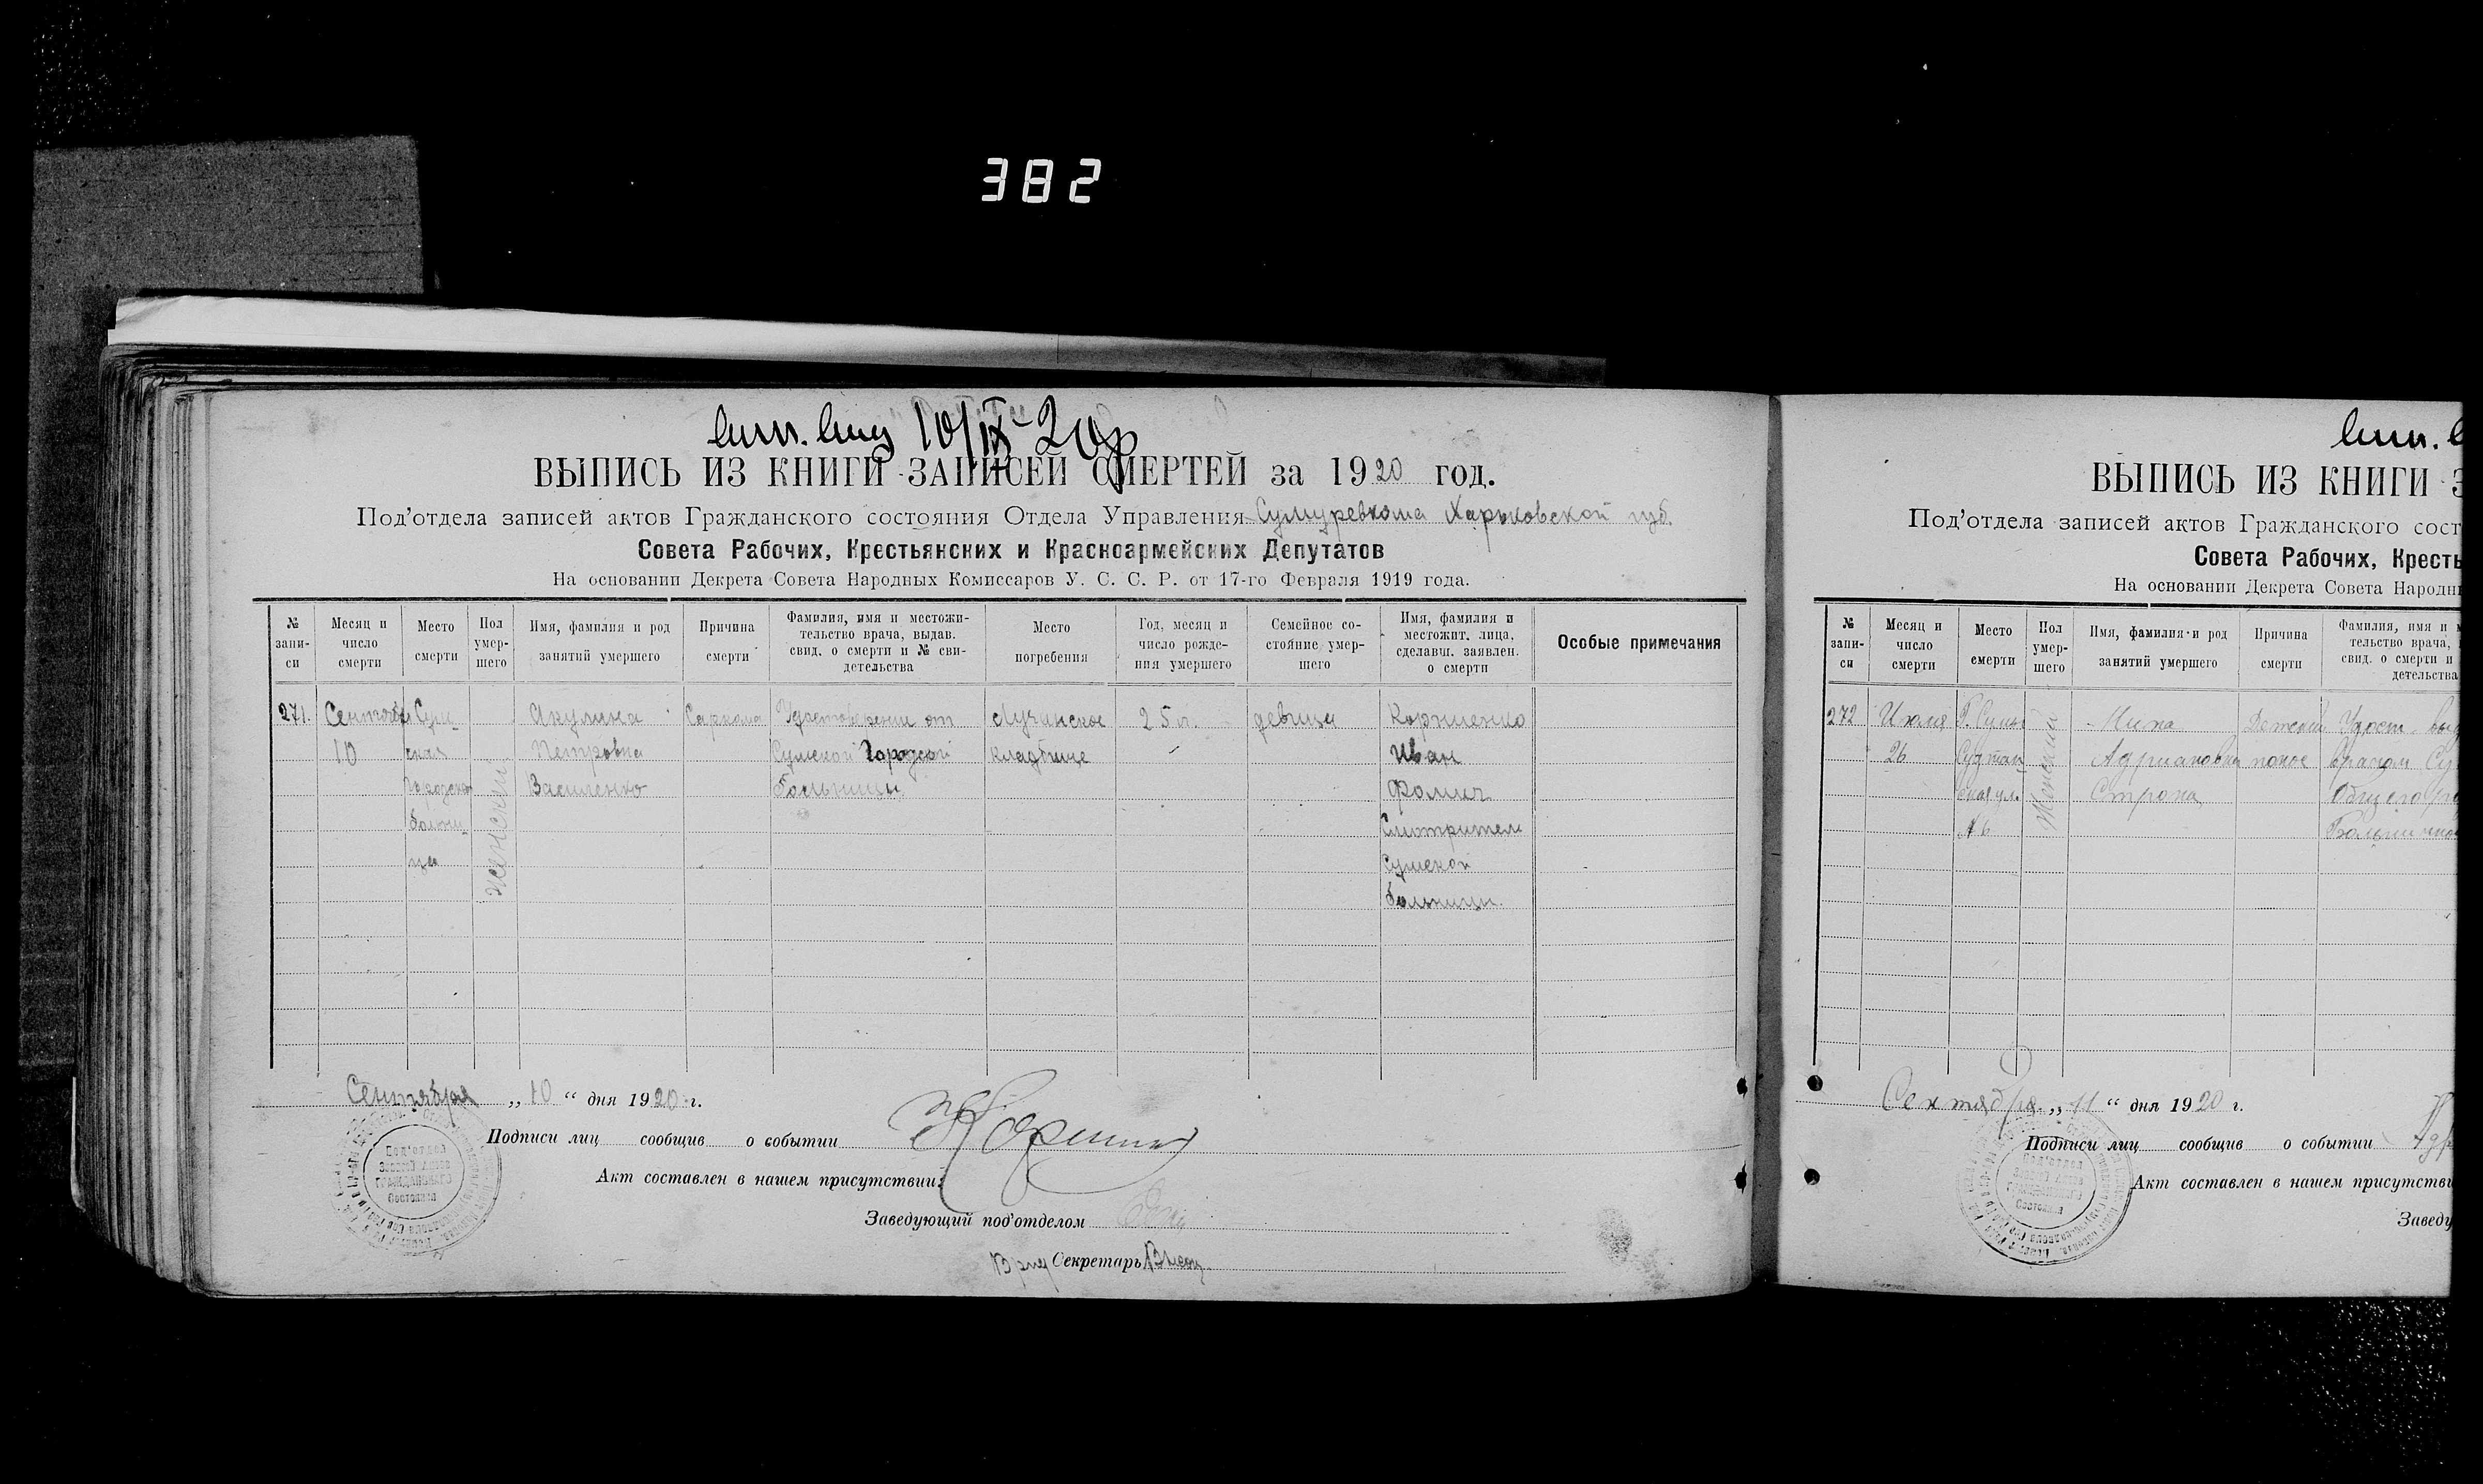 382
10/IX-20р
ВЫПИСЬ ИЗ КНИГИ ЗАПИСЕЙ СМЕРТЕЙ за 1920 год.
Под'отдела записей актов Гражданского состояния Отдела Управления Сумуревкома Харьковской губ.
Совета Рабочих, Крестьянских и Красноармейских Депутатов
На основании Декрета Совета Народных Комиссаров У. С. С. Р. от 17-го Февраля 1919 года.
№ запи-си
Месяц и число смерти
Место смерти
Пол умер-шего
Имя, фамилия и род занятий умершего
Причина смерти
Фамилия, имя и местожи-тельство врача, выдав. свид. о смерти и № сви-детельства
Место погребения
Год, месяц и число рожде-ния умершего
Семейное со-стояние умер-шего
Имя, фамилия и местожит. лица, сделавш. заявлен. о смерти
Особые примечания
271.
Сентября
10
Сум-
ская
Городская
больни-
ца
женский
Акулина
Петровна
Василенко
Саркома
Удостоверения от
Сумской Городской
Больницы
Лучанское
кладбище
25 л.
девица
Коршенко
Иван
Фомич
Смотритель
Сумской
больницы.
Сентября „10“ дня 1920 г.
Подписи лиц сообщив о событии
Акт составлен в нашем присутствии:
Заведующий под'отделом
Врид Секретарь
Под'отдел
Записей Актов
ГРАЖДАНСКАГО
Состояния
ВЫПИСЬ ИЗ КНИГИ З
Под'отдела записей актов Гражданского сост
Совета Рабочих, Кресть
На основании Декрета Совета Народн
№ запи-си
Месяц и число смерти
Место смерти
Пол умер-шего
Имя, фамилия и род занятий умершего
Причина смерти
Фамилия, имя и м
тельство врача,
свид. о смерти и
детельства
272
Июля
26
Г. Сумы
ская ул.
№ 6
Женский
Нина
Адриановна
Строна
Детский
понос
Удост. выд
врачом Су
Общегоро
Больнично
Сентября „11“ дня 1920 г.
Подписи лиц сообщив о событии
Акт составлен в нашем присутстви
Заведу
Под'отдел
Состояния